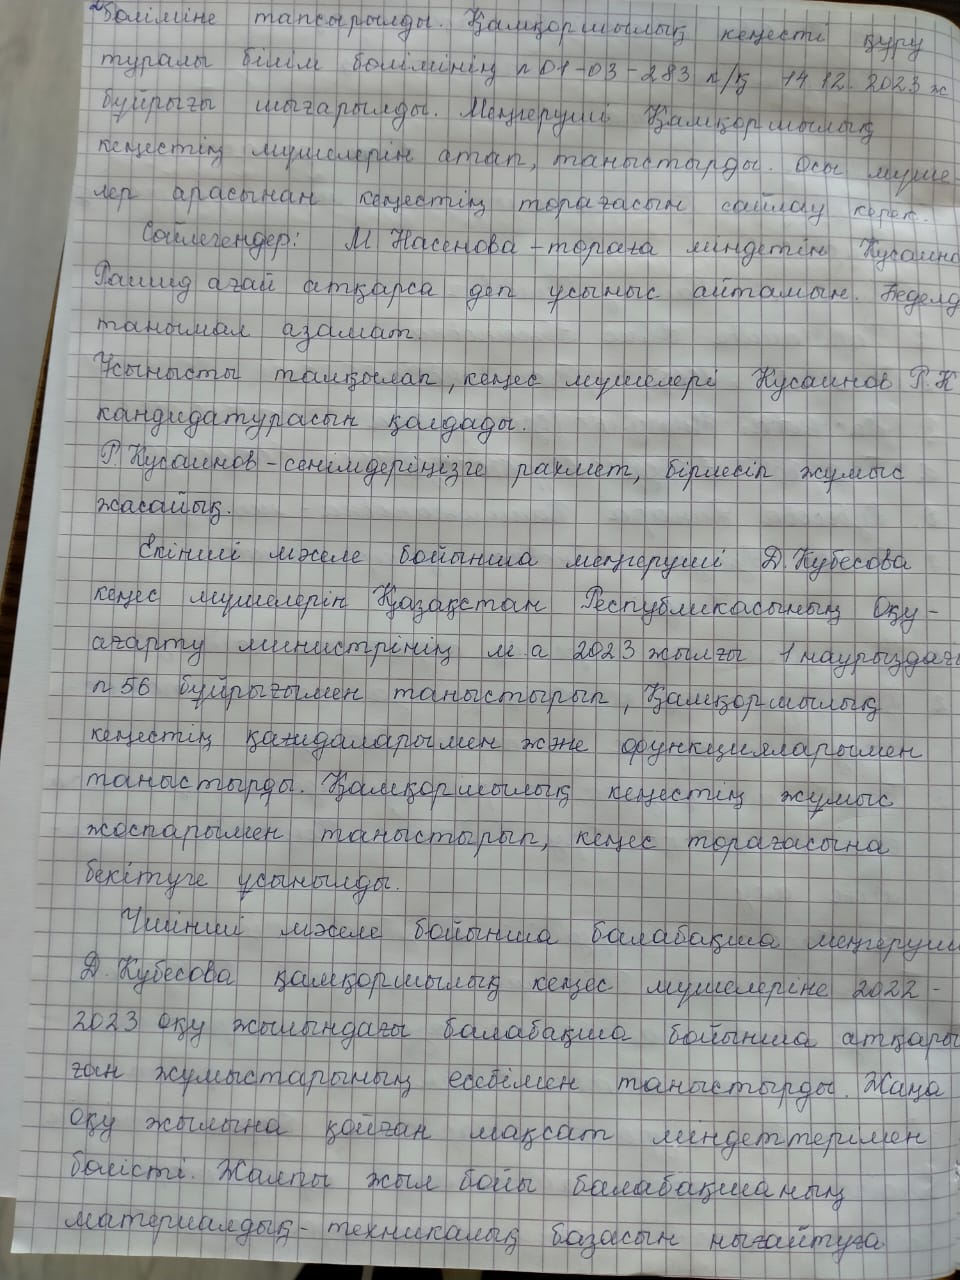 бөліміне тапсырылды. Қамқоршылық кеңесті құру
туралы білім бөлімінің n 01-03-283 н/қ 14.12.2023 ж
бұйрығы шығарылды. Меңгеруші Қамқоршылық
кеңестің мүшелерін атап, таныстырды. Осы мүше-
лер арасынан кеңестің төрағасын сайлау керек.
Сөйлегендер: М Насенова - төраға міндетін Кусаино
Рашид ағай атқарса деп ұсыныс айтамын. Беделд
танымал азамат.
Ұсынысты талқылап, кеңес мүшелері Кусаинов Р.К
кандидатурасын қолдады.
Р. Кусаинов - сенімдеріңізге рахмет, бірлесіп жұмыс
жасайық.
Екінші мәселе бойынша меңгеруші Д. Кубесова
кеңес мүшелерін Қазақстан Республикасының Оқу-
ағарту министрінің м а 2023 жылғы 1 наурыздағы
n 56 бұйрығымен таныстырып, Қамқоршылық
кеңестің қағидаларымен және функцияларымен
таныстырды. Қамқоршылық кеңестің жұмыс
жоспарымен таныстырып, кеңес төрағасына
бекітуге ұсынылды.
Үшінші мәселе бойынша балабақша меңгеруші
Д. Кубесова қамқоршылық кеңес мүшелеріне 2022-
2023 оқу жылындағы балабақша бойынша атқары
ған жұмыстарының есебімен таныстырды. Жаңа
оқу жылына қойған мақсат міндеттерімен
бөлісті. Жалпы жыл бойы балабақшаның
материалдық - техникалық базасын нығайтуға